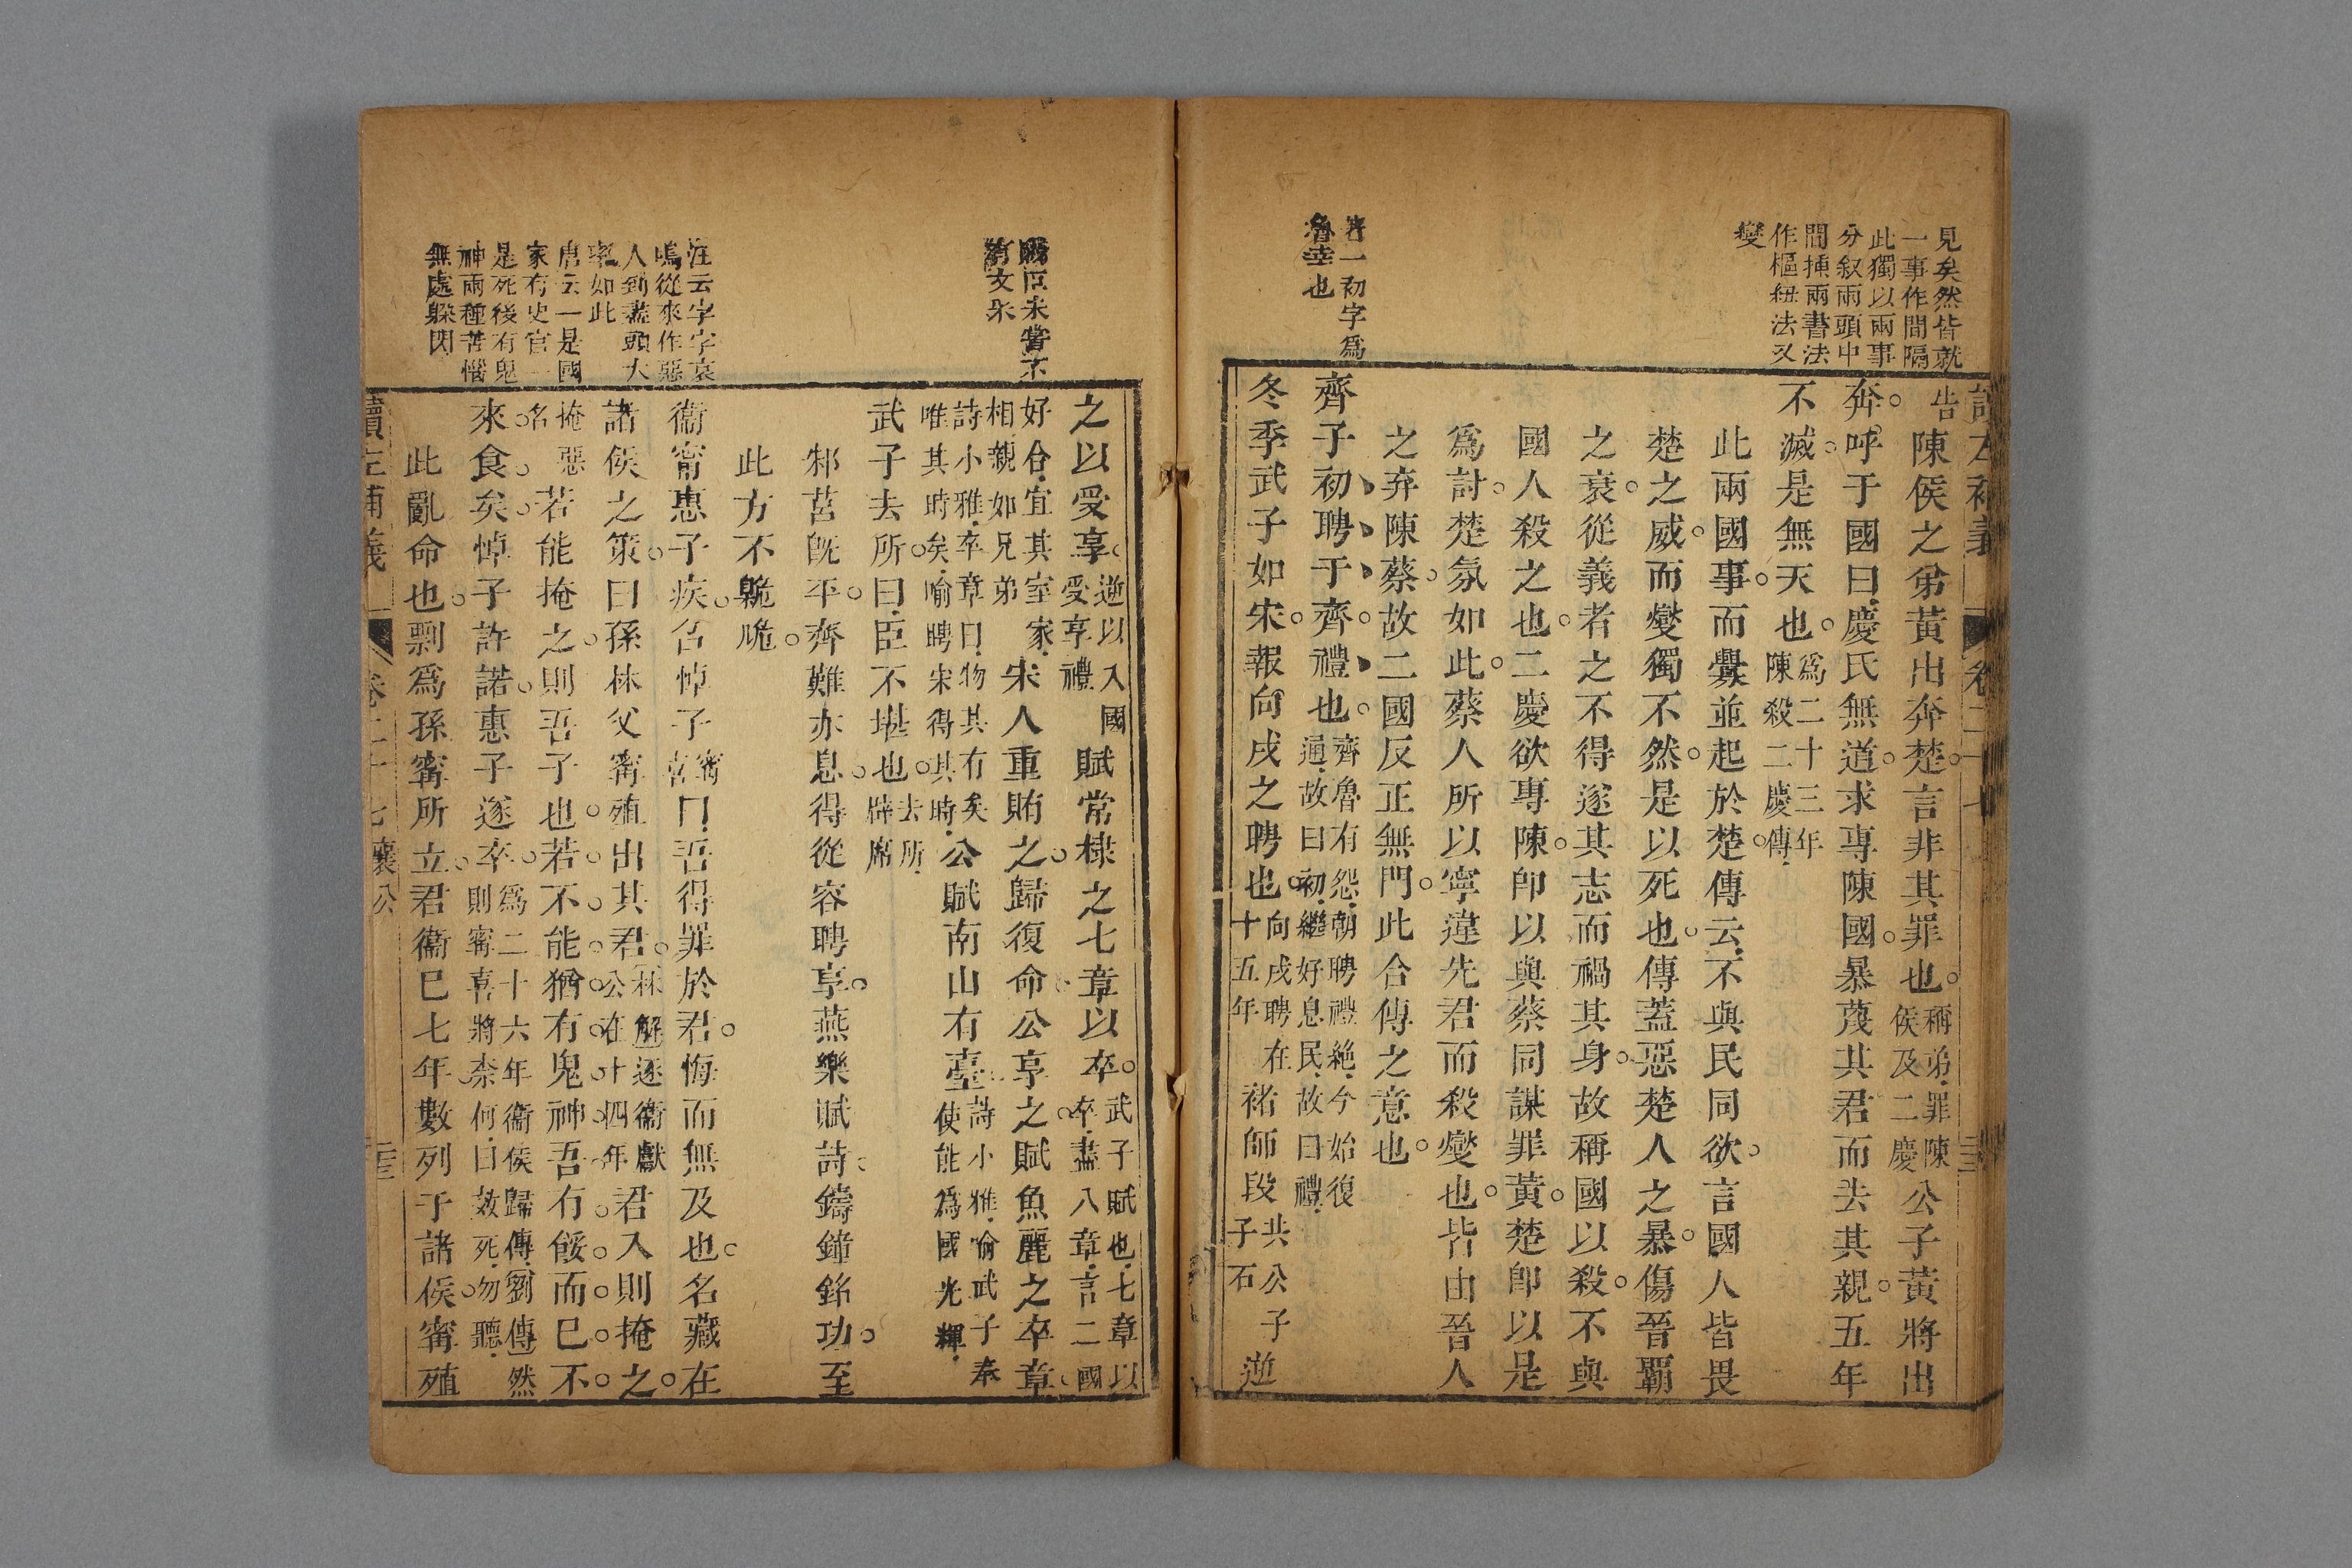 見矣然皆就
一事作間隔
此獨以兩事
分叙兩頭中
間挿兩書法
作樞紐法又
變
著一初字爲
魯幸也
告陳侯之弟黃出奔楚言非其罪也稱弟罪陳侯及二慶公子黃將出
奔呼于國曰慶氏無道求專陳國暴蔑其君而去其親五年
不滅是無天也爲二十三年陳殺二慶傳
此兩國事而釁並起於楚傳云不與民同欲言國人皆畏
楚之威而燮獨不然是以死也傳蓋惡楚人之暴傷晉霸
之衰從義者之不得遂其志而禍其身故稱國以殺不與
國人殺之也二慶欲專陳卽以與蔡同謀罪黃楚卽以是
爲討楚氛如此蔡人所以寧違先君而殺燮也皆由晉人
之弃陳蔡故二國反正無門此合傳之意也
齊子初聘于齊禮也齊魯有怨朝聘禮絶今始復通故曰初繼好息民故曰禮
冬季武子如宋報向戌之聘也向戌聘在十五年褚師段共公子子石逆
之以受享逆以入國受享禮賦常棣之七章以卒武子賦也七章以卒盡八章言二國
好合宜其室家相親如兄弟宋人重賄之歸復命公享之賦魚麗之卒章
詩小雅卒章曰物其有矣唯其時矣喻聘宋得其時公賦南山有臺詩小雅喻武子奉使能爲國光輝
武子去所曰臣不堪也去所辟席
邾莒旣平齊難亦息得從容聘享燕樂賦詩鑄鐘銘功至
此方不臲卼
衞甯惠子疾召悼子甯喜曰吾得罪於君悔而無及也名藏在
諸侯之策曰孫林父甯殖出其君林解逐衞獻公在十四年君入則掩之
掩惡名若能掩之則吾子也若不能猶有鬼神吾有餒而已不
來食矣悼子許諾惠子遂卒爲二十六年衞侯歸傳劉傳然則甯喜將柰何曰效死勿聽
此亂命也剽爲孫甯所立君衞已七年數列于諸侯甯殖
國臣未嘗不
有文采
注云字字哀
鳴從來作惡
人到蓋頭大
率如此
唐云一是國
家有史官一
是死後有鬼
神兩種苦惱
無處躲閃
讀左補義
卷二十七襄公